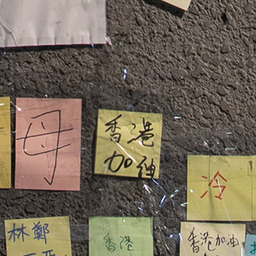 母
香港
加油
冷
林鄭
香港
香港加油